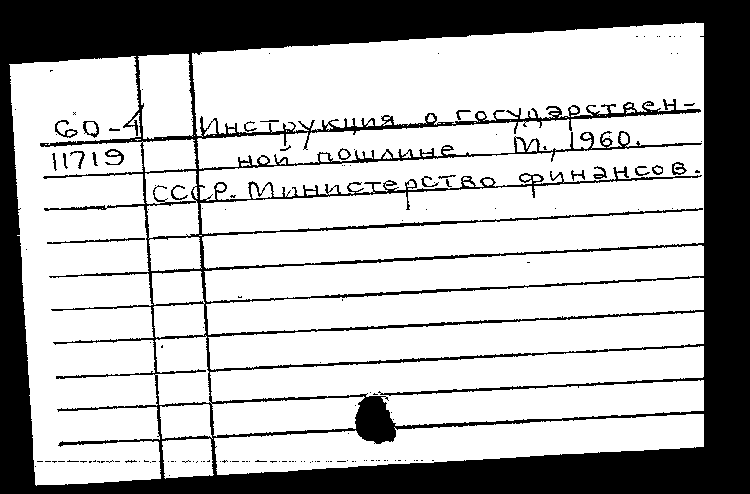 60-4 Инструкция о государствен-
11719 ной пошлине. М., 1960.
СССР. Министерство финансов.